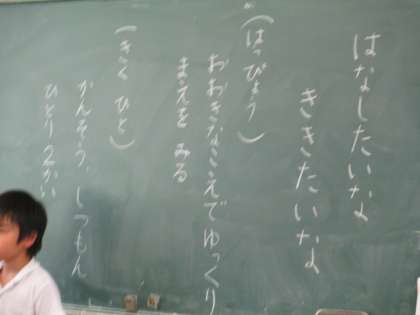 はなしたいな
ききたいな
(はっぴょう)
おおきなこえでゆっくり
まえをみる
(きくひと)
かんそう、しつもん
ひとり2かい